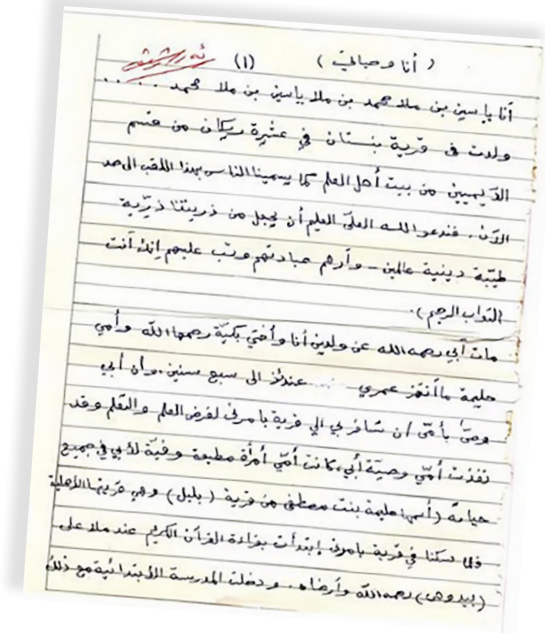 ( أنا وحياتي ) (١)
أنا ياسين بن ملا محمد بن ملا ياسين بن ملا محمد .....
ولدت في قرية بنستان في عشيرة ريكان من قسم
الديميين من بيت أهل العلم كما يسمينا الناس بهذا اللقب الى حد
الآن. فندعو الله العليّ العليم أن يجعل من ذريتنا ذرّية
طيّبة دينية عالمين - وأرهم عبادتهم وتب عليهم إنك أنت
التواب الرحيم).
مات أبي رحمه الله عن ولدين أنا وأختي بكيّة رحمها الله وأمي
حليمة ما أنقز عمري عندئذ الى سبع سنين. وأن أبي
وصىٰ بأمّي أن تسافر بي الى قرية بامرني لغرض العلم والتعلم وقد
نفذت أمّي وصيّة أبي، كانت أمّي أمرأة مطيعة وفيّة لأبي في جميع
حياته (أسمها حليمة بنت مصطفى من قرية (بليل) وهي قريتها الأهلية
فلما سكنا في قرية بامرني إبتدأت بقراءة القرآن الكريم عند ملا على
(بيدوهى) رحمه الله وأرضاه. ودخلت المدرسة الأبتدائية مع ذلك